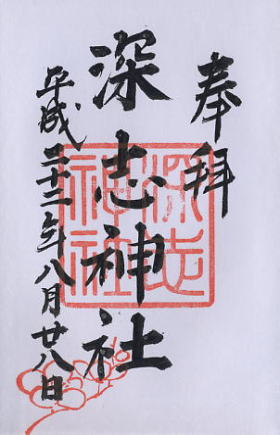 奉拝
深志神社
平成二十二年八月廿八日
深志神社